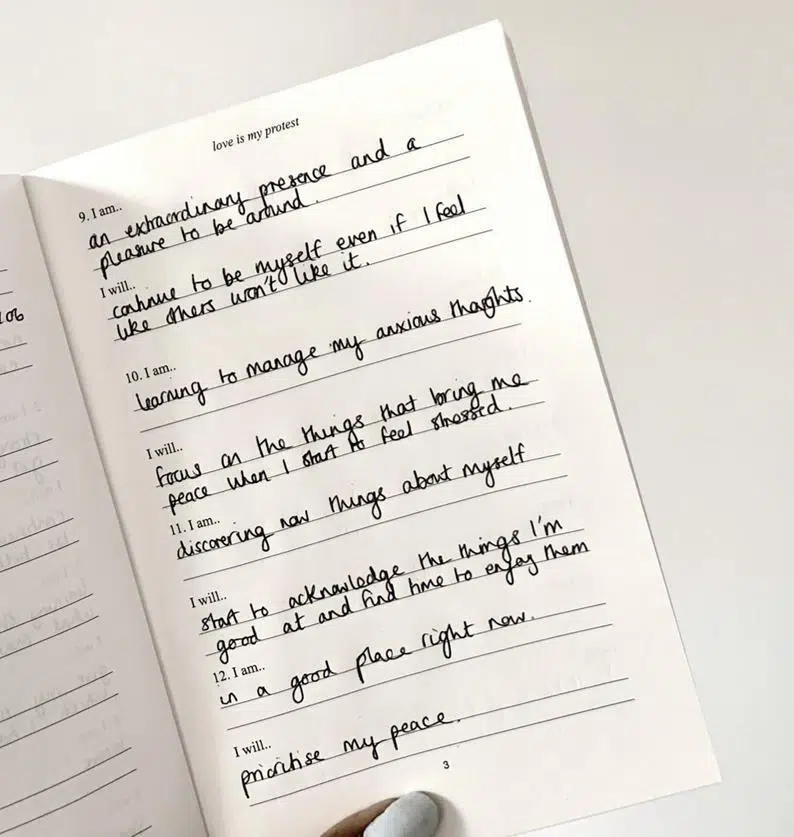 love is my protest
9. I am..
an extraordinary presence and a
pleasure to be around.
I will..
continue to be myself even if I feel
like others won't like it.
10. I am..
learning to manage my anxious thoughts.
I will..
focus on the things that bring me
peace when I start to feel stressed.
11. I am..
discovering new things about myself
I will..
start to acknowledge the things I'm
good at and find time to enjoy them
12. I am..
in a good place right now.
I will..
prioritise my peace.
3